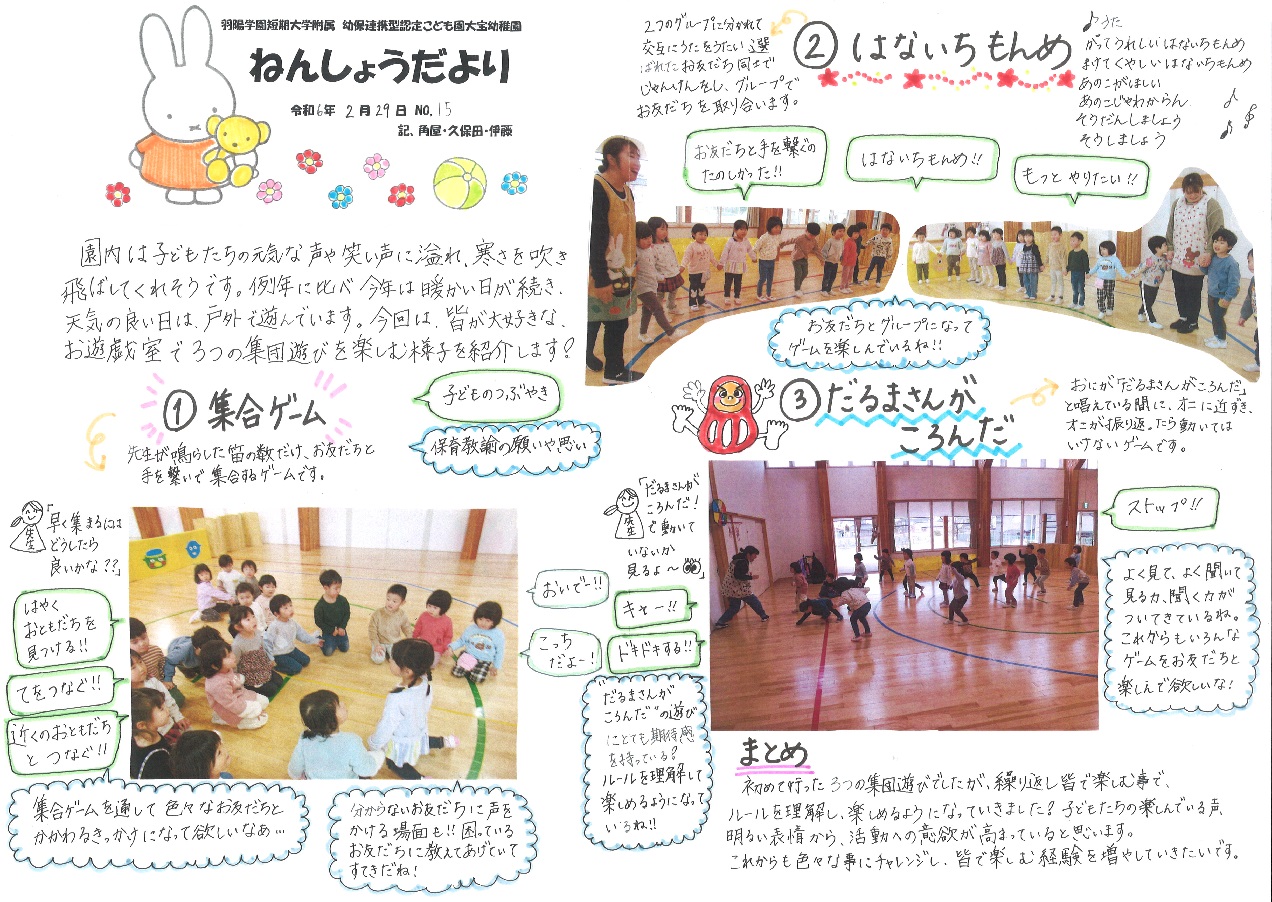 羽陽学園短期大学附属 幼保連携型認定こども園大宝幼稚園
ねんしょうだより
令和6年 2月29日 NO.15
記、角屋・久保田・伊藤
園内は子どもたちの元気な声や笑い声に溢れ、寒さを吹き
飛ばしてくれそうです。例年に比べ今年は暖かい日が続き、
天気の良い日は、戸外で遊んでいます。今回は、皆が大好きな、
お遊戯室で3つの集団遊びを楽しむ様子を紹介します!
① 集合ゲーム
先生が鳴らした笛の数だけ、お友だちと
手を繋いで集合するゲームです。
子どものつぶやき
保育教諭の願いや思い
先生
「早く集まるには
どうしたら
良いかな??」
はやく
おともだちを
見つける!!
てをつなぐ!!
近くのおともだち
とつなぐ!!
おいでー!!
こっち
だよー!
集合ゲームを通して色々なお友だちと
かかわるきっかけになって欲しいなぁ…
分からないお友だちに声を
かける場面も!!困っている
お友だちに教えてあげていて
すてきだね!
② はないちもんめ
2つのグループに分かれて
交互にうたをうたい選
ばれたお友だち同士で
じゃんけんをし、グループで
お友だちを取り合います。
♪うた
かってうれしいはないちもんめ
まけてくやしいはないちもんめ
あのこがほしい
あのこじゃわからん
そうだんしましょう
そうしましょう
お友だちと手を繋ぐの
たのしかった!!
はないちもんめ!!
もっとやりたい!!
お友だちとグループになって
ゲームを楽しんでいるね!!
③ だるまさんが
ころんだ
おにが「だるまさんがころんだ」
と唱えている間に、オニに近ずき、
オニが振り返ったら動いては
いけないゲームです。
先生
「だるまさんが
ころんだ!
で動いて
いないか
見るよ〜」
キャー!!
ドキドキする!!
ストップ!!
"だるまさんが
ころんだ"の遊び
にとても期待感
を持っている?
ルールを理解して
楽しめるようになって
いるね!!
よく見て、よく聞いて
見る力、聞く力が
ついてきているね。
これからもいろんな
ゲームをお友だちと
楽しんで欲しいな!
まとめ
初めて行った3つの集団遊びでしたが、繰り返し皆で楽しむ事で、
ルールを理解し、楽しめるようになっていきました?子どもたちの楽しんでいる声、
明るい表情から、活動への意欲が高まっていると思います。
これからも色々な事にチャレンジし、皆で楽しむ経験を増やしていきたいです。